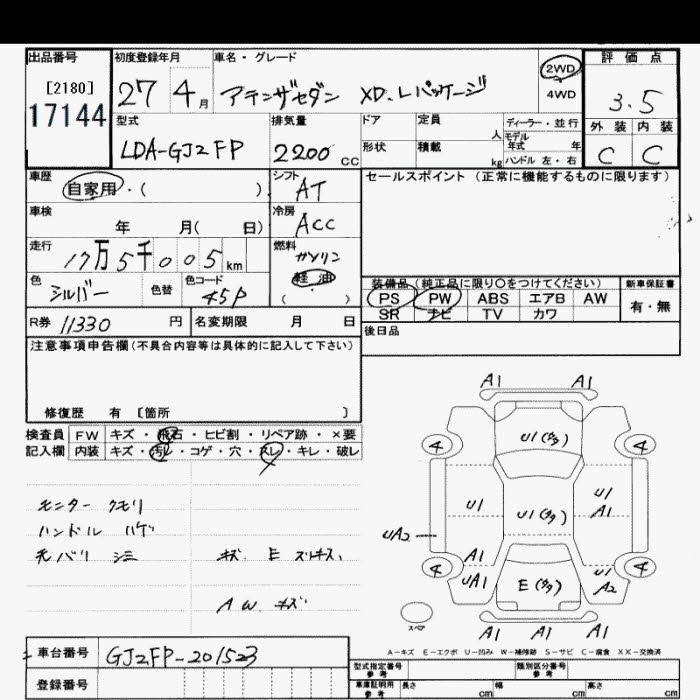 出品番号 初度登録年月 車名・グレード 評価点
[2180] 27 4月 アテンザセダン XD.Lパッケージ 2WD 3.5
17144 4WD
型式 排気量 ドア 定員 人 ディーラー・並行 外装 内装
モデル年式 年
LDA-GJ2FP 2200cc 形状 積載 kg ハンドル 左・右 C C
車歴 シフト セールスポイント (正常に機能するものに限ります)
自家用・( ) AT
車検 冷房
年 月( 日) ACC
走行 燃料
17万5千005km ガソリン
軽油
色 色替 色コード ( )
シルバー 45P
装備品(純正品に限り○をつけてください) 新車保証書
PS PW ABS エアB AW 有・無
SR ナビ TV カワ
R券 11330円 名変期限 月 日
後日品
注意事項申告欄(不具合内容等は具体的に記入して下さい)
修復歴 有 [箇所 ]
検査員 FW キズ・飛石・ヒビ割・リペア跡・×要
記入欄 内装 キズ・汚レ・コゲ・穴・スレ・キレ・破レ
モニター クモリ
ハンドル ハゲ
キズ E スリキズ、
A.W キズ
A1 A1
U1(多)
4 4
U1 U1(多) U1
A1
UA2
A1 U1
4 UA1 E(多) A2 4
スペア A1 A1 A1
A-キズ E-エクボ U-凹み W-補修跡 S-サビ C-腐食 XX-交換済
車台番号 GJ2FP-201523
登録番号
型式指定番号 参考 類別区分番号 参考
車庫証明用 参考 長さ cm 幅 cm 高さ cm